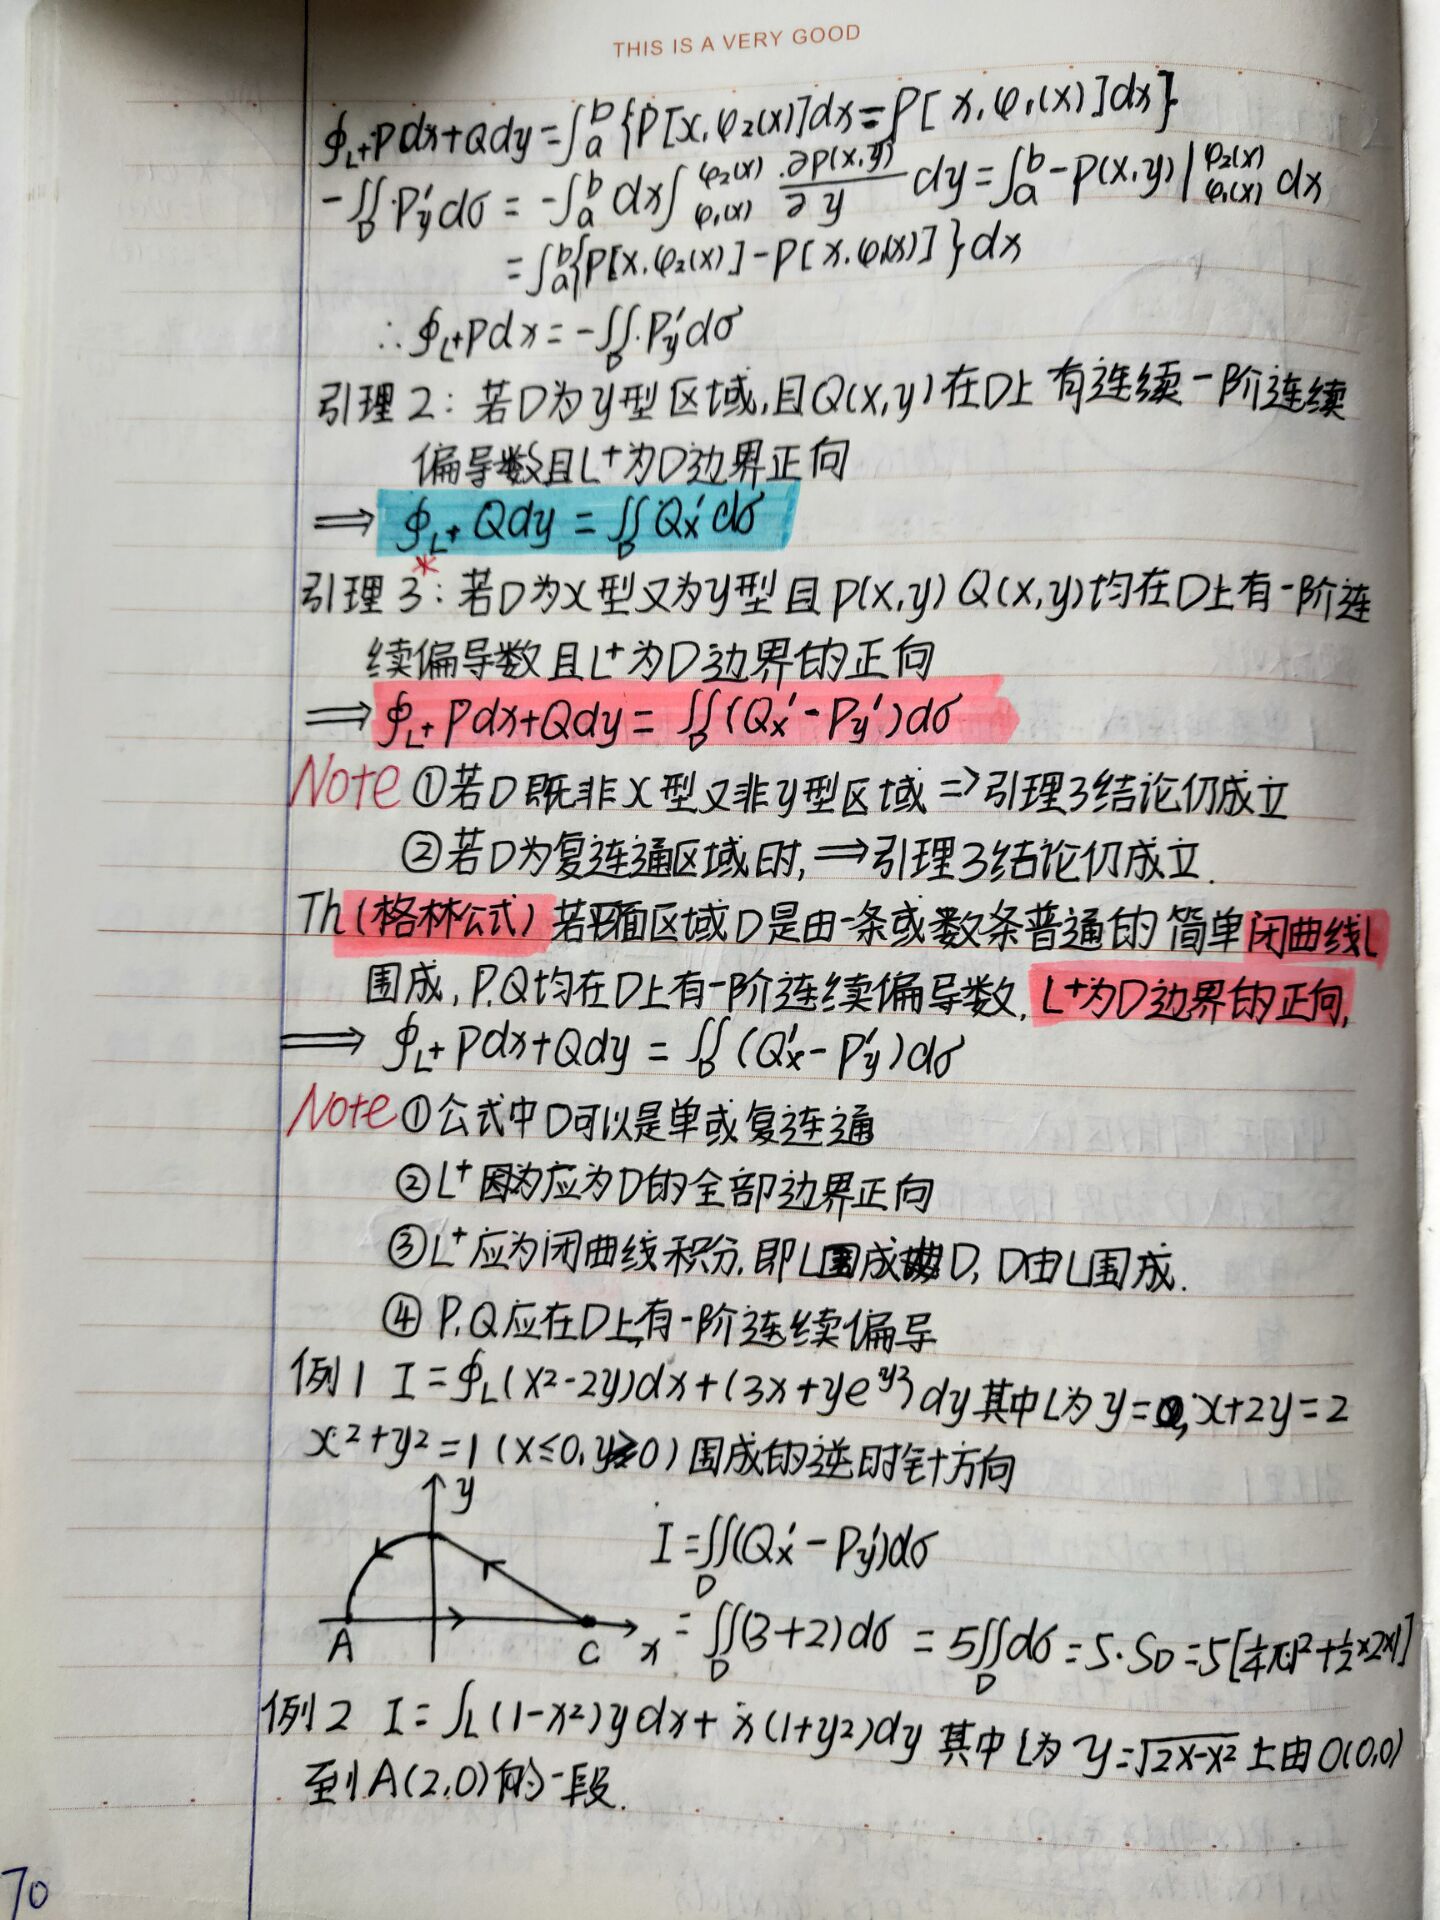 THIS IS A VERY GOOD
∮L+Pdx+Qdy=∫a^b{P[x,φ₂(x)]dx=P[x,φ₁(x)]dx}
-∬D P'y dσ = -∫a^b dx∫φ₁(x)^φ₂(x) ∂P(x,y)/∂y dy=∫a^b -P(x,y)|φ₁(x)^φ₂(x) dx
=∫a^b{P[x,φ₂(x)]-P[x,φ₁(x)]}dx
∴∮L+Pdx=-∬D P'y dσ
引理2:若D为y型区域,且Q(x,y)在D上有连续一阶连续
偏导数且L⁺为D边界正向
⟹ ∮L+ Qdy = ∬D Q'x dσ
引理3*:若D为X型又为y型且P(x,y) Q(x,y)均在D上有一阶连
续偏导数且L⁺为D边界的正向
⟹ ∮L+ Pdx+Qdy= ∬D(Q'x-P'y)dσ
Note ①若D既非X型又非y型区域 ⇒引理3结论仍成立
②若D为复连通区域时,⟹引理3结论仍成立.
Th(格林公式)若平面区域D是由一条或数条普通的简单闭曲线L
围成,P.Q均在D上有一阶连续偏导数,L⁺为D边界的正向,
⟹ ∮L+ Pdx+Qdy = ∬D (Q'x-P'y)dσ
Note ①公式中D可以是单或复连通
②L⁺因为应为D的全部边界正向
③L⁺应为闭曲线积分,即L围成D,D由L围成.
④P.Q应在D上有一阶连续偏导
例1 I=∮L(x²-2y)dx+(3x+ye^y²)dy其中L为y=0,x+2y=2
x²+y²=1(x≤0,y≥0)围成的逆时针方向
y
I=∬D(Q'x-P'y)dσ
A C x
=∬D(3+2)dσ=5∬D dσ=5·SD=5[¼π·1²+½×2×1]
例2 I=∫L(1-x²)ydx+x(1+y²)dy 其中L为y=√2x-x² 上由O(0,0)
到A(2,0)的一段.
70